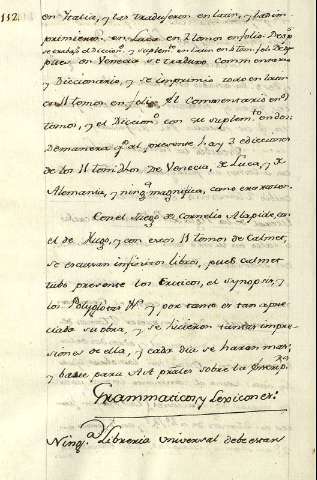 112.
en Italia, y las traduxeron en latin, y las im-
primieron en Luca en 2 tomos en folio. Desp.
se traduxo el Diccion.º y suplem.to en latin en 3 tom. fol. Des-
pues en Venecia se traduxo Commentario
y Diccionario, y se imprimio todo en latin
en 11 tomos en folio. El Commentario en 9
tomos, y el Diccion.º con su suplem.to en dos.
De manera q.e al presente hay 3 ediciones
de los 11 tom. de Venecia, de Luca, y de
Alemania, y ning.a magnifica, como era razon.
Con el Juego de Cornelio Alapide, con
el de Hugo, y con estos 11 tomos de Calmet,
se escusan infinitos libros, pues Calmet
tubo presente los Criticos, el Synopsis, y
los Polyglotas &.a y por tanto es tan apre-
ciada su obra, y se hicieron tantas impre-
siones de ella, y cada dia se haran mas,
y baste para Act. prales sobre la Escrip.ra
Grammaticos, y Lexicones:
Ning.a Libreria universal debe estar